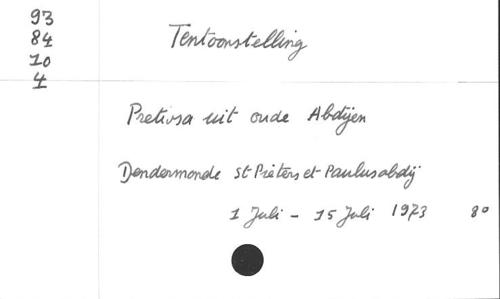 93
84
10
4
Tentoonstelling
Pretiosa uit oude Abdijen
Dendermonde St Pieters et Paulusabdij
1 Juli - 15 Juli 1973 80